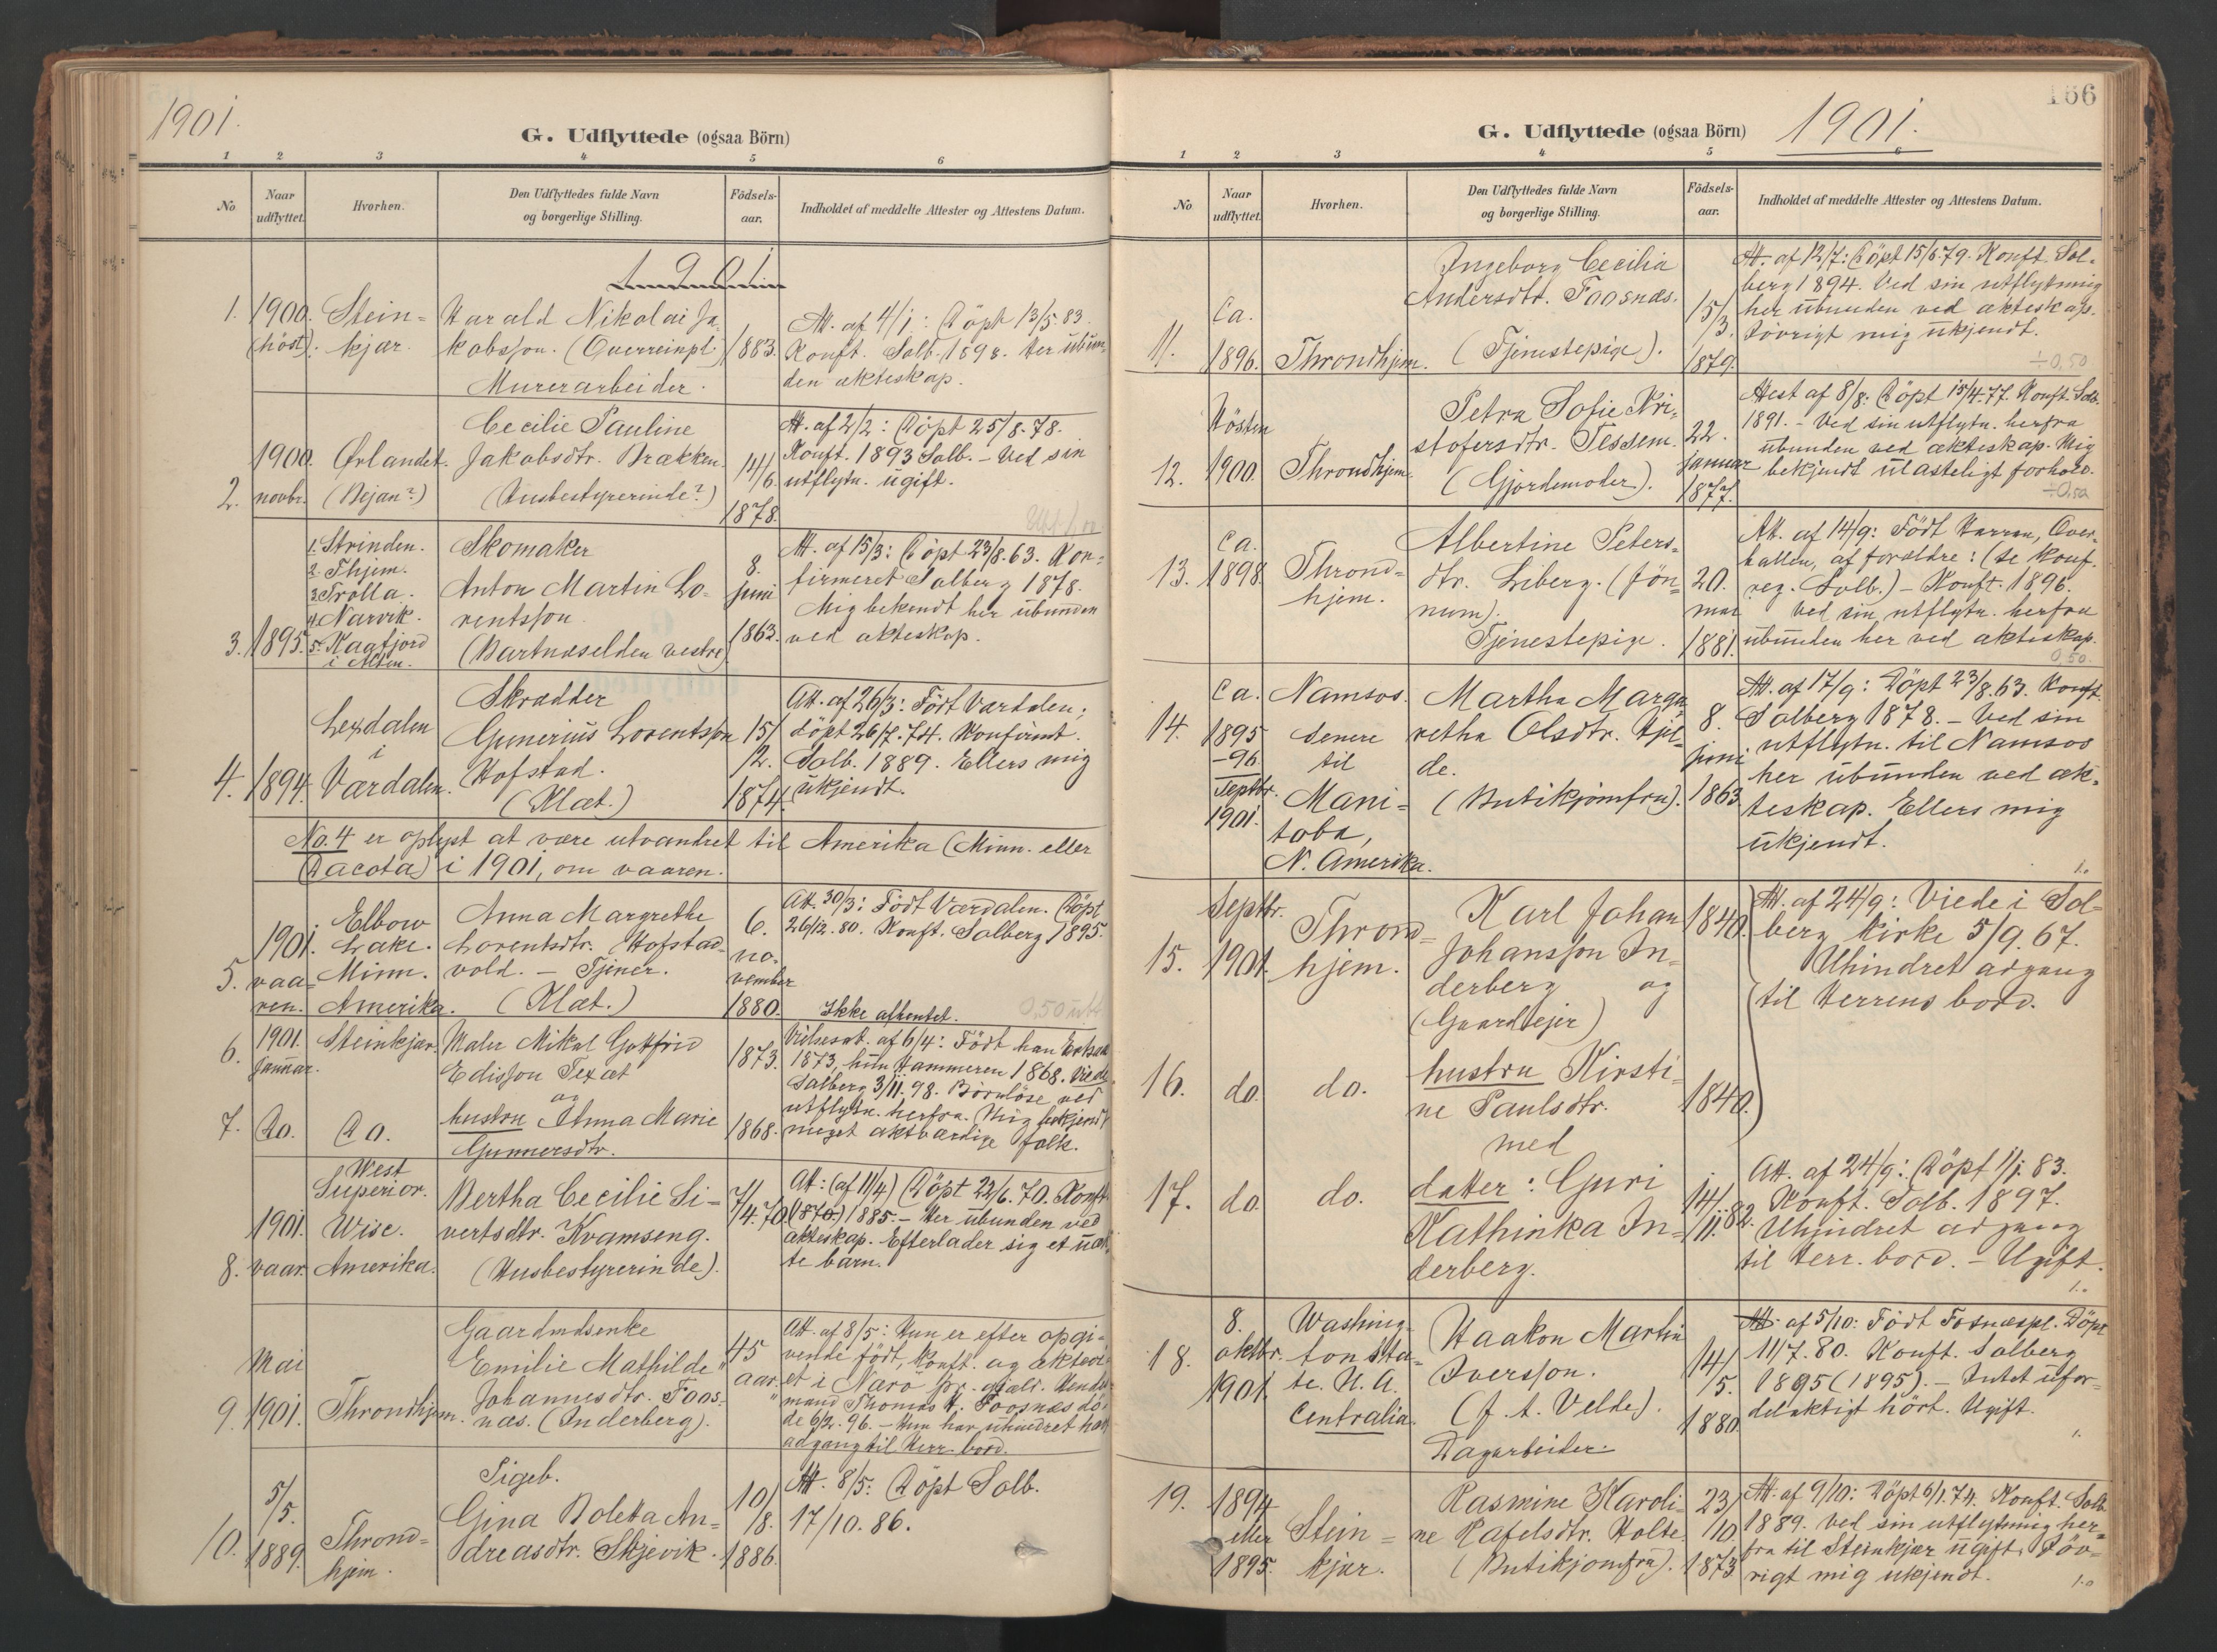 1901.
G. Udflyttede (ogsaa Börn)
1 2 3 4 5 6
No
Naar udflyttet.
Hvorhen.
Den Udflyttedes fulde Navn og borgerlige Stilling.
Födsels-aar.
Indholdet af meddelte Attester og Attestens Datum.
1901
1.
1900.
(höst).
Stein=
kjær.
Harald Nikolai Ja-
kobsson. (Overreinpl.)
Murerarbeider.
1883.
Att. af 4/1: Döpt 13/5. 83.
Konft. Solb. 1898. Her ubun-
den ekteskap.
2.
1900.
novbr.
Ørlandet.
(Bejan?)
Cecilie Pauline
Jakobsdtr. Brækken.
(Husbestyrerinde?)
14/6
1878.
Att. af 2/2: Döpt 25/8. 78.
Konft. 1893 Solb. – Ved sin
utflytn. ugift.
3.
1895.
1. Strinden.
2. Thjem.
3. Trolla.
4. Narvik.
5. Kaafjord
i Alten.
Skomaker
Anton Martin Lo-
rentsson
(Bartnæselden vestre)
8.
juni
1863.
Att. af 15/3: Döpt 23/8. 63. Kon-
firmeret Salberg 1878.
Mig bekendt her ubunden
ved ekteskap.
4.
1894.
Lexdalen
i
Værdalen.
Skrædder
Gunerius Lorentsson
Hofstad.
(Klæt.)
15/
12.
1874.
Att. af 26/3: Födt Værdalen;
döpt 26/7. 74. Konfirmt.
Solb. 1889. Ellers mig
ukjendt.
No. 4 er oplyst at være utvandret til Amerika (Minn. eller
Dacota) i 1901, om vaaren.
5.
1901.
vaa-
ren.
Elbow
Lake.
Minn.
Amerika.
Anna Margrethe
Lorentsdtr. Hofstad-
vold. – Tjener.
(Klæt.)
6.
no-
vember
1880.
Att. 30/3: Födt Værdalen. Döpt
26/12. 80. Konft. Salberg 1895.
Ikke afhentet.
6.
1901.
januar.
Steinkjær.
Maler Mikal Gotfrid
Edisson Texæt
og
1873.
Vielsesat. af 6/4: Födt han
1873, hun Hammeren 1868. Viede
Salberg 3/11. 98. Barnlöse ved
utflytn. herfra. Mig bekjendt
meget aktværdige folk.
7.
Do.
Do.
hustru Anna Marie
Gunnersdtr.
1868.
8.
1901.
vaar.
West
Superior.
Wisc.
Amerika.
Bertha Cecilie Si-
vertsdtr. Kvamseng.
(Husbestyrerinde).
7/4. 70.
Att: (af 11/4) Döpt 22/6. 70. Konft.
(1870.) 1885. – Her ubunden ved
ekteskap. Efterlader sig et uæk-
te barn.
9.
Mai
1901.
Throndhjem.
Gaardmdsenke
Emilie Mathilde
Johannesdtr. Foos-
næs. (Inderberg).
45
aar.
Att. af 8/5: Hun er efter opgi-
vende födt, konft. og ektevi-
et i Nærö
mand Thomas H. Foosnæs dö-
de 6/2. 96. – Hun har uhindret
adgang til Herr. bord.
10.
5/5.
1889.
Thrond-
hjem.
Pigeb.
Gina Boletta An-
dreasdtr. Skjevik.
10/
8.
1886.
Att. 8/5: Döpt Solb.
17/10. 86.
166
G. Udflyttede (ogsaa Börn)
1901.
1 2 3 4 5 6
No
Naar udflyttet.
Hvorhen.
Den Udflyttedes fulde Navn og borgerlige Stilling.
Födsels-aar.
Indholdet af meddelte Attester og Attestens Datum.
11.
Ca.
1896.
Throndhjem.
Ingeborg Cecilia
Andersdtr. Foosnæs.
(Tjenestepige).
15/
3.
1879.
Att. af 12/7: Döpt 15/6. 79. Konft. Sal-
berg 1894. Ved sin utflytning
her ubunden ved ekteskap.
Iövrigt mig ukjendt.
÷0,50
12.
Hösten
1900.
Throndhjem.
Petra Sofie Kri-
stofersdtr. Tessem.
(Gjordemoder).
22.
januar
1877.
Attest af 8/8: Döpt 15/4. 77. Konft. Solb.
1891. – Ved sin utflytn. herfra
ubunden ved ekteskap. Mig
bekjendt ulasteligt forhold.
÷0,50
13.
Ca.
1898.
Thrond=
hjem.
Albertine Peters-
dtr. Liberg. (Jön-
num).
Tjenestepige.
20.
mai
1881.
Att. af 14/9: Födt Harran, Over-
hallen, af forældre: (se konf.
reg. Solb.) – Konft. 1896.
Ved sin utflytn. herfra
ubunden her ved ekteskap.
0,50.
14.
Ca.
1895
–96.
Septbr.
1901.
Namsos.
Senere
til
Mani-
toba,
N. Amerika.
Martha Marga-
retha Olsdtr. Hjel-
de.
(Butikjomfru).
8.
juni
1863.
Att. af 17/9: Döpt 23/8. 63. Konft.
Salberg 1878. – Ved sin
utflytn. til Namsos
her ubunden ved ek-
teskap. Ellers mig
ukjendt.
1.
15.
Septbr.
1901.
Thrond-
hjem.
Karl Johan
Johansson In-
derberg og
(Gaardejer)
1840.
Att. af 24/9: Viede i Sal-
berg kirke 5/9. 67.
Uhindret adgang
til Herrens bord.
16.
do.
do.
hustru Kirsti-
ne Paulsdtr.
med
1840.
17.
do.
do.
datter: Guri
Kathinka In-
derberg.
14/
11. 82.
Att. af 24/9: Döpt 1/1. 83.
Konft. Solb. 1897.
Uhindret adgang
til Herr. bord. – Ugift.
1.
18.
8.
oktbr.
1901.
Washing-
ton Sta-
te. U. A.
Centralia.
Haakon Martin
Iversson.
(f. t. Velde).
Dagarbeider.
14/
5.
1880.
Att. af 5/10: Födt Fosnæspl. Döpt
11/7. 80. Konft. Salberg
1895 (1895). – Intet ufor-
delaktigt hört. Ugift.
1.
19.
1894
eller
1895.
Stein=
kjær.
Rasmine Karoli-
ne Rafelsdtr. Holte.
(Butikjomfru).
23/
10
1873
Att. af 9/10: Döpt 6/1. 74. Konft. Solb.
1889. Ved sin utflytning her-
fra til Steinkjær ugift. Iöv-
rigt mig ukjendt.
1.0